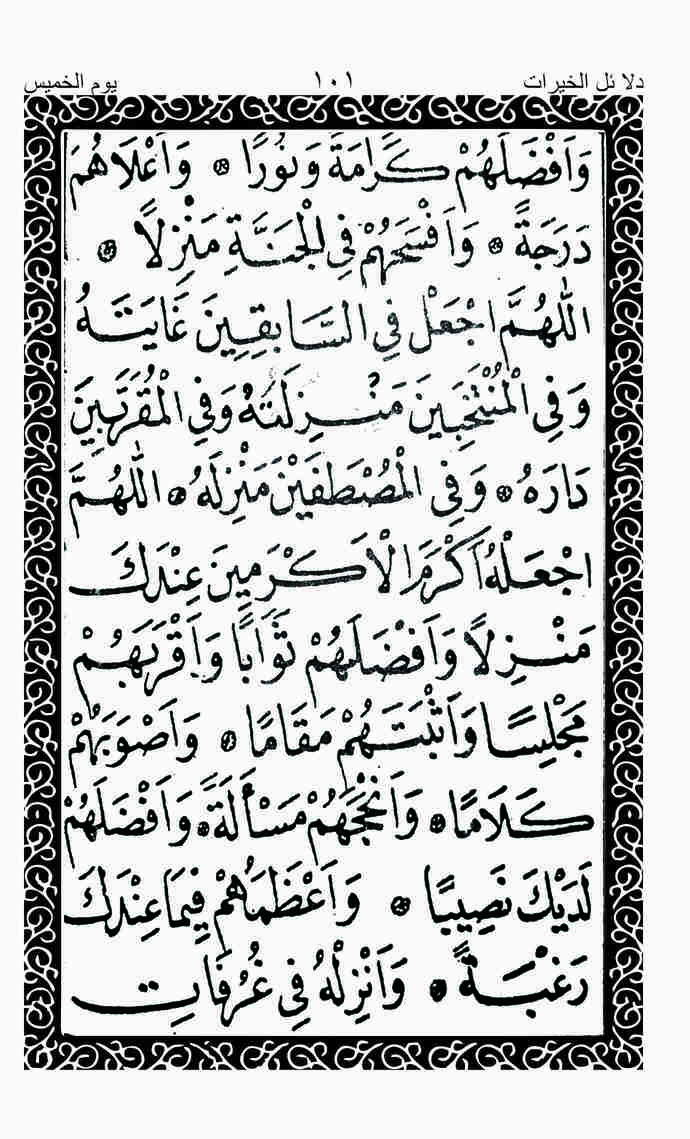 دلائل الخيرات ١٠١ يوم الخميس
وَاَفْضَلَهُمْ كَرَامَةً وَنُورًا ۞ وَاَعْلَاهُمْ
دَرَجَةً ۞ وَاَفْسَحَهُمْ فِي الْجَنَّةِ مَنْزِلًا ۞
اَللّٰهُمَّ اجْعَلْ فِي السَّابِقِينَ غَايَتَهُ
وَفِي الْمُنْتَخَبِينَ مَنْزِلَتَهُ وَفِي الْمُقَرَّبِينَ
دَارَهُ ۞ وَفِي الْمُصْطَفَيْنَ مَنْزِلَهُ ۞ اَللّٰهُمَّ
اجْعَلْهُ اَكْرَمَ الْاَكْرَمِينَ عِنْدَكَ
مَنْزِلًا وَاَفْضَلَهُمْ ثَوَابًا وَاَقْرَبَهُمْ
مَجْلِسًا وَاَثْبَتَهُمْ مَقَامًا ۞ وَاَصْوَبَهُمْ
كَلَامًا ۞ وَاَنْجَحَهُمْ مَسْأَلَةً ۞ وَاَفْضَلَهُمْ
لَدَيْكَ نَصِيبًا ۞ وَاَعْظَمَهُمْ فِيمَا عِنْدَكَ
رَغْبَةً ۞ وَاَنْزِلْهُ فِي غُرُفَاتِ